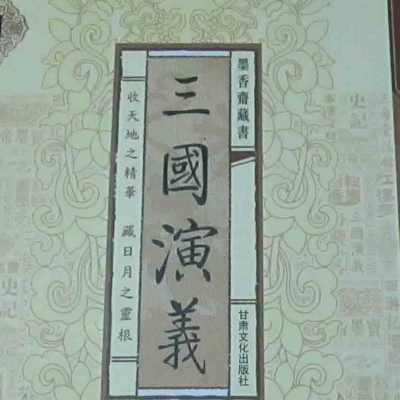 墨香齋藏書
三國演義
收天地之精華 藏日月之靈根
甘肃文化出版社
史記
三國演義
史記